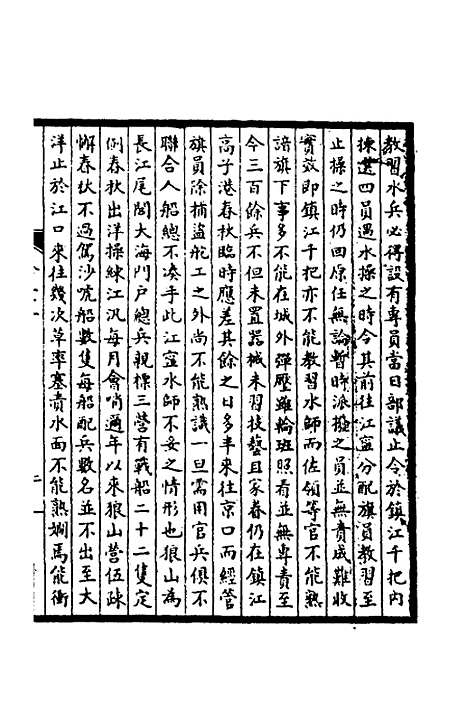 教習水兵必得設有專員當日部議止令於鎮江千把內
揀選四員遇水操之時令其前往江寧分配旗員教習至
止操之時仍回原任無論暫時派撥之員並無責成難收
實效即鎮江千把亦不能教習水師而佐領等官不能熟
諳旗下事多不能在城外彈壓雖輪班照看並無專責至
今三百餘兵不但未置器械未習技藝且家眷仍在鎮江
高子港春秋臨時應差其餘之日多半來往京口而經管
旗員除捕盜舵工之外尚不能熟識一旦需用官兵俱不
聯合人船總不湊手此江寧水師不妥之情形也狼山為
長江尾閭大海門戶總兵親標三營有戰船二十二隻定
例春秋出洋操練江汛每月會哨邇年以來狼山營伍疎
懈春秋不過駕沙唬船數隻每船配兵數名並不出至大
洋止於江口來往幾次草率塞責水面不能熟嫻焉能衝